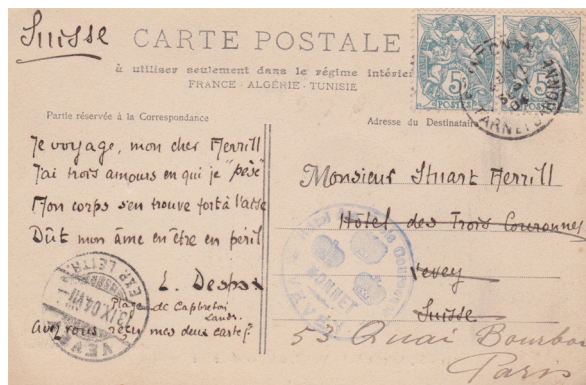 Suisse
CARTE POSTALE
à utiliser seulement dans le régime intérieur
FRANCE - ALGÉRIE - TUNISIE
Partie réservée à la Correspondance
Je voyage, mon cher Merrill
J'ai trois amours en qui je "pèse"
Mon corps s'en trouve fort à l'aise
Dût mon âme en être en péril
E. Despax
Plage de Capbreton
Landes.
Avez vous reçu mes deux cartes?
Adresse du Destinataire
Monsieur Stuart Merrill
Hôtel des Trois Couronnes
Vevey
Suisse
53 Quai Bourbon
Paris
5
5
POSTES
MONNET
VEVEY
VEVEY
EXP. LETTR.